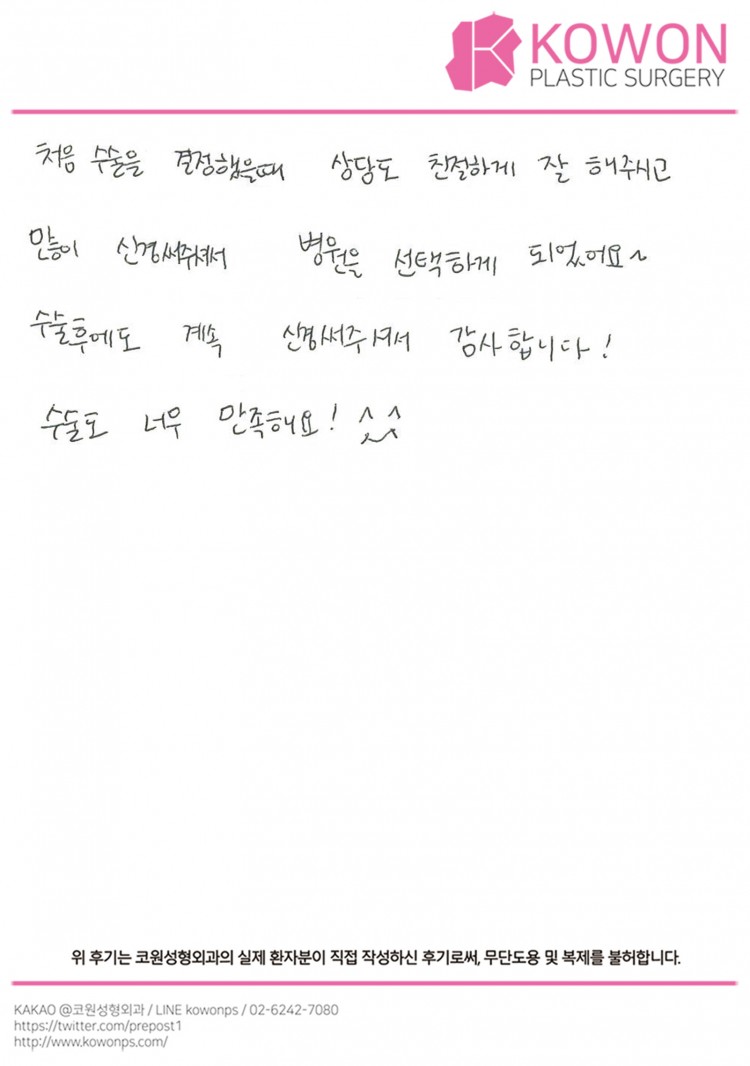 KOWON
PLASTIC SURGERY
처음 수술을 결정했을때 상담도 친절하게 잘 해주시고
많이 신경써주셔서 병원을 선택하게 되었어요~
수술후에도 계속 신경써주셔서 감사합니다!
수술도 너무 만족해요! ^^
위 후기는 코원성형외과의 실제 환자분이 직접 작성하신 후기로써, 무단도용 및 복제를 불허합니다.
KAKAO @코원성형외과 / LINE kowonps / 02-6242-7080
https://twitter.com/prepost1
http://www.kowonps.com/